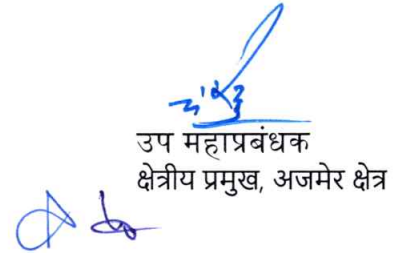 उप महाप्रबंधक
क्षेत्रीय प्रमुख, अजमेर क्षेत्र